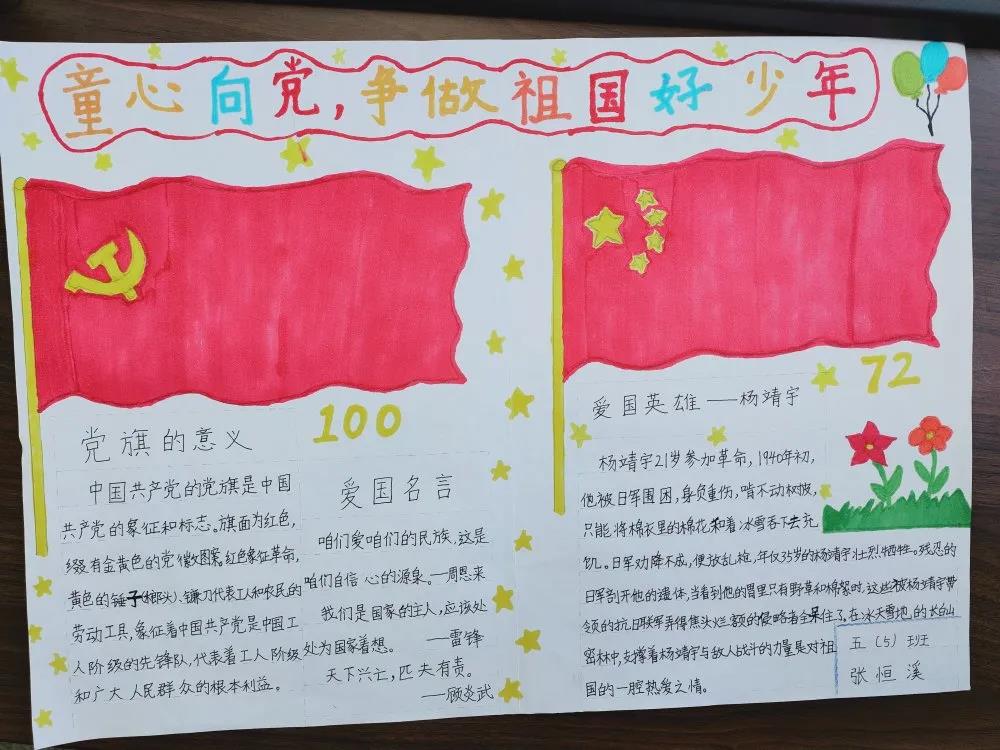 童心向党,争做祖国好少年
100
党旗的意义
中国共产党的党旗是中国
共产党的象征和标志。旗面为红色,
缀有金黄色的党徽图案。红色象征革命,
黄色的锤子(榔头)、镰刀代表工人和农民的
劳动工具,象征着中国共产党是中国工
人阶级的先锋队,代表着工人阶级
和广大人民群众的根本利益。
爱国名言
咱们爱咱们的民族,这是
咱们自信心的源泉。—周恩来
我们是国家的主人,应该处
处为国家着想。 —雷锋
天下兴亡,匹夫有责。
—顾炎武
72
爱国英雄——杨靖宇
杨靖宇21岁参加革命,1940年初,
他被日军围困,身负重伤,啃不动树皮,
只能将棉衣里的棉花和着冰雪吞下去充
饥。日军劝降不成,便放乱枪,年仅35岁的杨靖宇壮烈牺牲。残忍的
日军剖开他的遗体,当看到他的胃里只有野草和棉絮时,这些被杨靖宇带
领的抗日联军弄得焦头烂额的侵略者全呆住了。在冰天雪地的长白山
密林中,支撑着杨靖宇与敌人战斗的力量是对祖
国的一腔热爱之情。
五(5)班
张恒溪